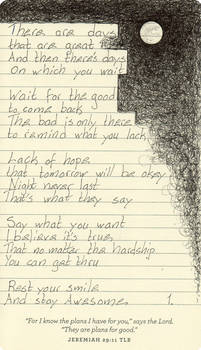 There are days
that are great
And then there's days
On which you wait
Wait for the good
to come back
The bad is only there
to remind what you lack
Lack of hope
that tomorrow will be okey
Night never last
That's what they say
Say what you want
I believe it's true
That no matter the hardship
You can get thru
Rest your smile
And stay Awesome 1.
"For I know the plans I have for you," says the Lord.
"They are plans for good."
JEREMIAH 29:11 TLB